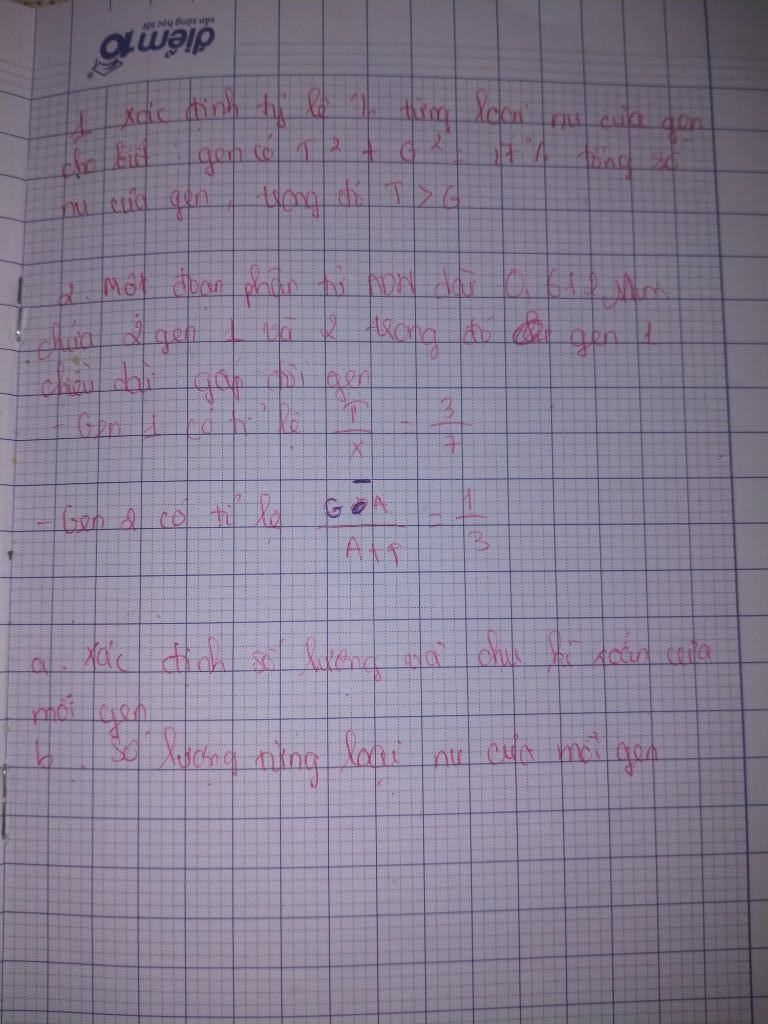 điểm 10
sẵn sàng học tốt
1 xác định tỷ lệ % từng loại nu của gen
cho biết : gen có T² + G² = 17 % tổng số
nu của gen, trong đó T > G
2. Một đoạn phân tử ADN dài 0,612 µm
chứa 2 gen 1 và 2 trong đó gen 1
chiều dài gấp đôi gen
- Gen 1 có tỉ lệ T/X = 3/7
- Gen 2 có tỉ lệ G - A / A + T = 1/3
a. xác định số lượng và chu kì xoắn của
mỗi gen
b. Số lượng từng loại nu của mỗi gen